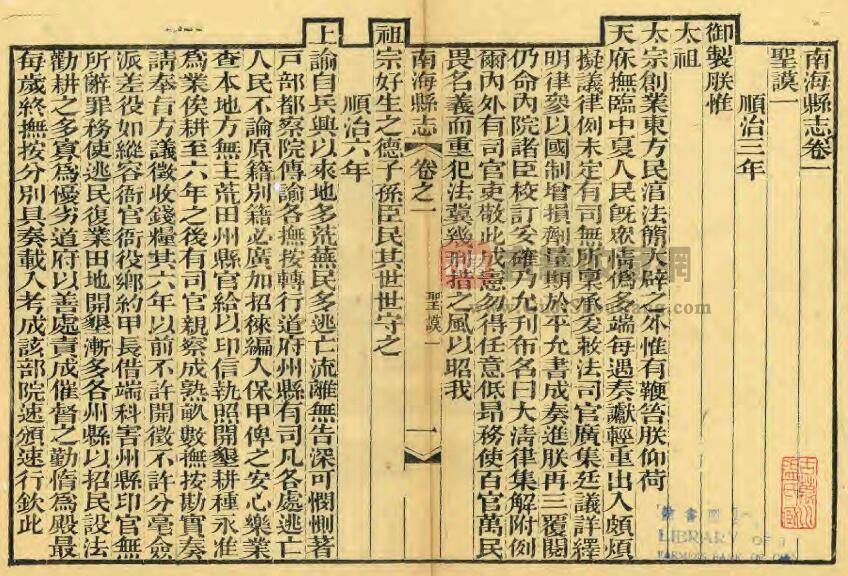 南海縣志卷一
聖謨一
順治三年
御製朕惟
太祖
太宗創業東方民淳法簡大辟之外惟有鞭笞朕仰荷
天庥撫臨中夏人民旣眾情僞多端每遇奏讞輕重出入頗煩
擬議律例未定有司無所稟承爰敕法司官廣集廷議詳繹
明律參以國制增損劑量期於平允書成奏進朕再三覆閱
仍命內院諸臣校訂妥確乃允刊布名曰大清律集解附例
爾內外有司官吏敬此成憲勿得任意低昻務使百官萬民
畏名義而重犯法冀幾刑措之風以昭我
南海縣志
卷之一
聖謨一
一
祖宗好生之德子孫臣民其世世守之
順治六年
上諭自兵興以來地多荒蕪民多逃亡流離無告深可憫惻著
戸部都察院傳諭各撫按轉行道府州縣有司凡各處逃亡
人民不論原籍別籍必廣加招徠編入保甲俾之安心樂業
查本地方無主荒田州縣官給以印信執照開墾耕種永准
爲業俟耕至六年之後有司官親察成熟畝數撫按勘實奏
請奉旨方議徵收錢糧其六年以前不許開徵不許分毫僉
派差役如縱容衙官衙役鄉約甲長借端科害州縣印官無
所辭罪務使逃民復業田地開墾漸多各州縣以招民設法
勸耕之多寡爲優劣道府以善處責成催督之勤惰爲殿最
每歲終撫按分別具奏載入考成該部院速頒速行欽此
LIBRARY OF